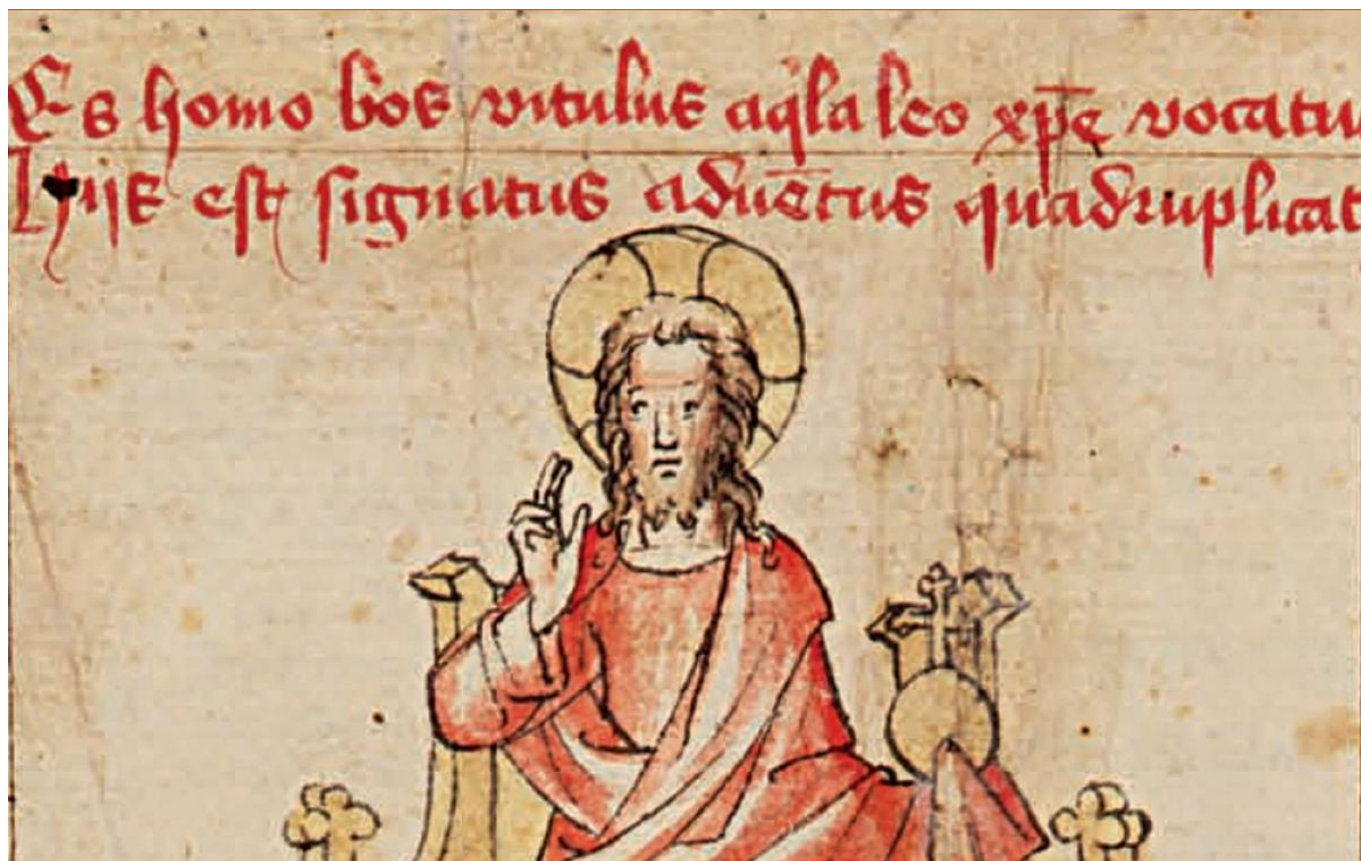 Es homo bos vitulus aqla leo xp̄e vocatu
Hijs est signatus aduētus quadruplicat